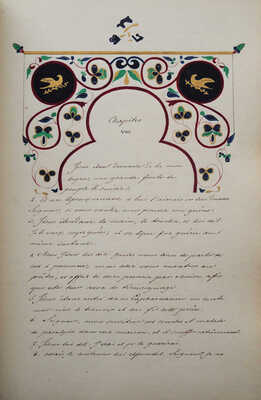 Chapitre
VIII
Jésus étant descendu de la mon
tagne, une grande foule de
peuple le suivit.
2. Et un lépreux
Seigneur, si vous voulez, vous pouvez me guérir.
3. Jésus étendant la main, le toucha, et lui dit
Je le veux, soyez guéri; et sa lèpre fut guérie au
même instant.
4. Alors Jésus lui dit: gardez vous bien de parler de
ceci à personne; mais allez vous montrer au
prêtre, et
afin que cela leur serve de témoignage.
5. Jésus étant entré dans Capharnaüm un cente
nier vint le trouver et lui fit cette prière
6. Seigneur, mon serviteur est couché et malade
de paralysie dans ma maison, et il souffre extrêmement.
7. Jésus lui dit: J'irai et je le guérirai.
8. mais le centenier lui répondit: Seigneur, je ne